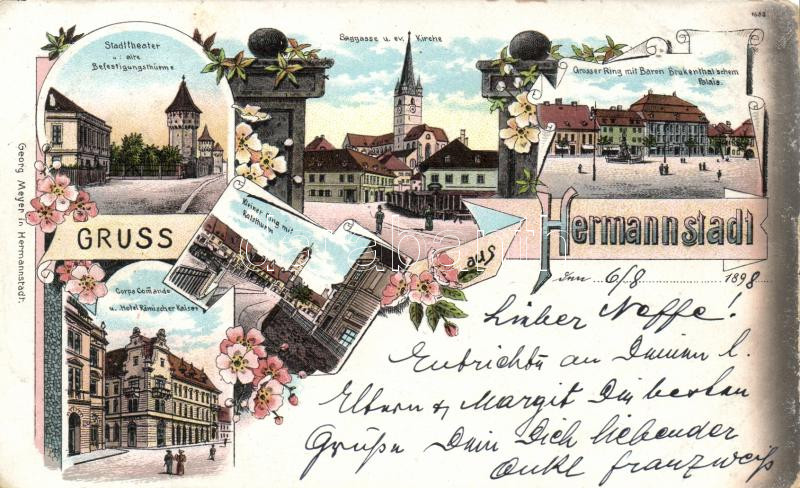 1688
Stadttheater
u: alte
Befestigungsthürme
Saggasse u. ev. Kirche
Grosser Ring mit Baron Brukenthal'schem
Palais.
Georg Meyer in Hermannstadt.
GRUSS
Kleiner Ring mit
Ratsthurm
aus
Hermannstadt
Corps Comando
u. Hotel Römischer Kaiser
den 6/8 1898
Lieber Neffe!
Entrichte an Deinen l.
Eltern & Margit Die besten
Grüße Dein Dich liebender
Onkel Franz
darabanth